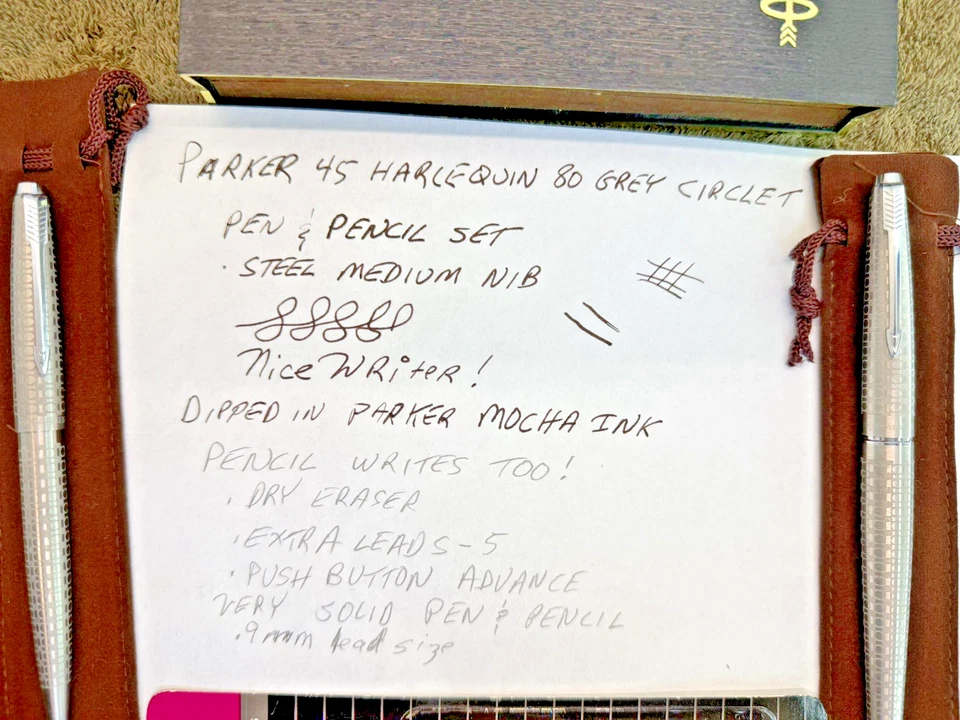 PARKER 45 HARLEQUIN 80 GREY CIRCLET
PEN & PENCIL SET
· STEEL MEDIUM NIB
Nice Writer!
DIPPED IN PARKER MOCHA INK
PENCIL WRITES TOO!
· DRY ERASER
· EXTRA LEADS - 5
· PUSH BUTTON ADVANCE
VERY SOLID PEN & PENCIL
.9mm lead size